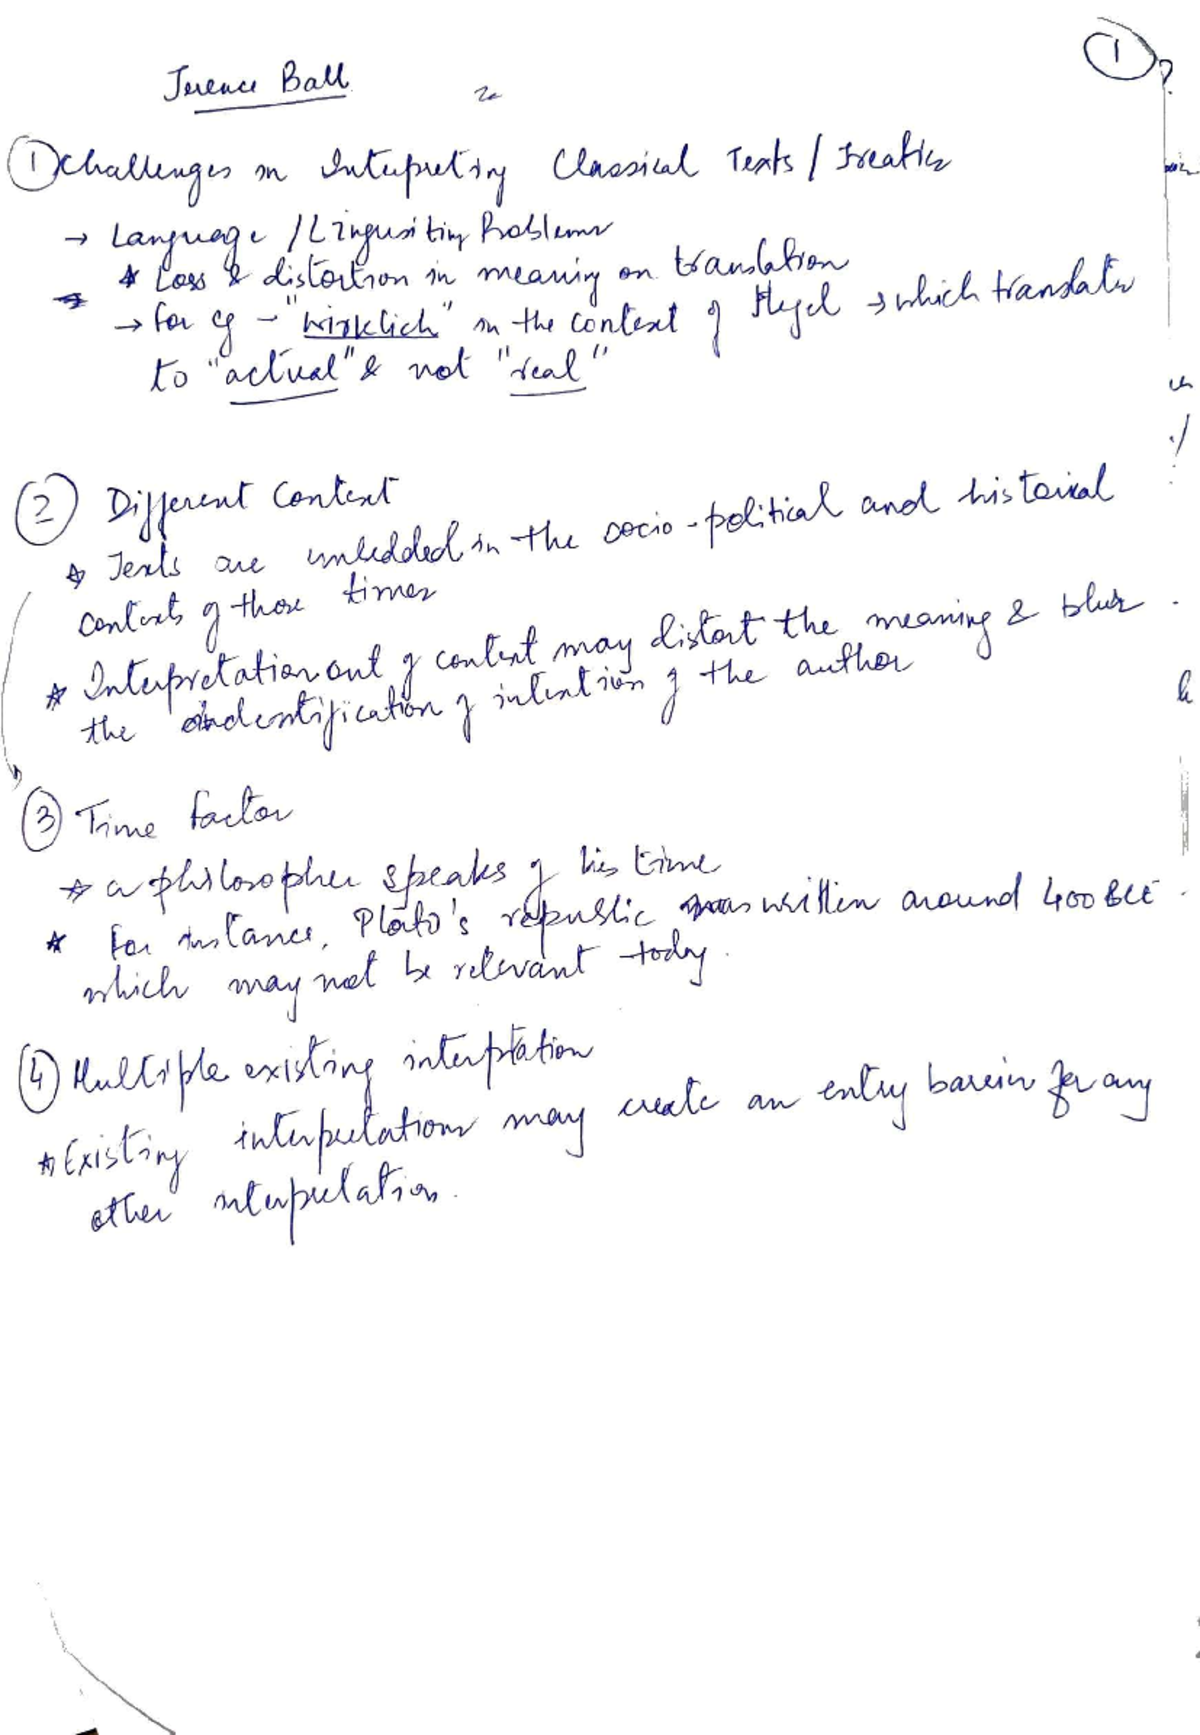 1
Terence Ball
① Challenges in Interpreting Classical Texts / Treaties
→ Language / Linguisting Problems
* Loss & distortion in meaning on translation
→ for eg - "wirklich" in the context of Hegel → which translates
to "actual" & not "real"
② Different Context
* Texts are embedded in the socio-political and historical
contexts of those times
* Interpretation out of context may distort the meaning & blur
the indentification of intention of the author
③ Time factor
* a philosopher speaks of his time
* For instance, Plato's republic was written around 400 BCE
which may not be relevant today.
④ Multiple existing interptation
* Existing interpretations may create an entry barein for any
other interpretation.